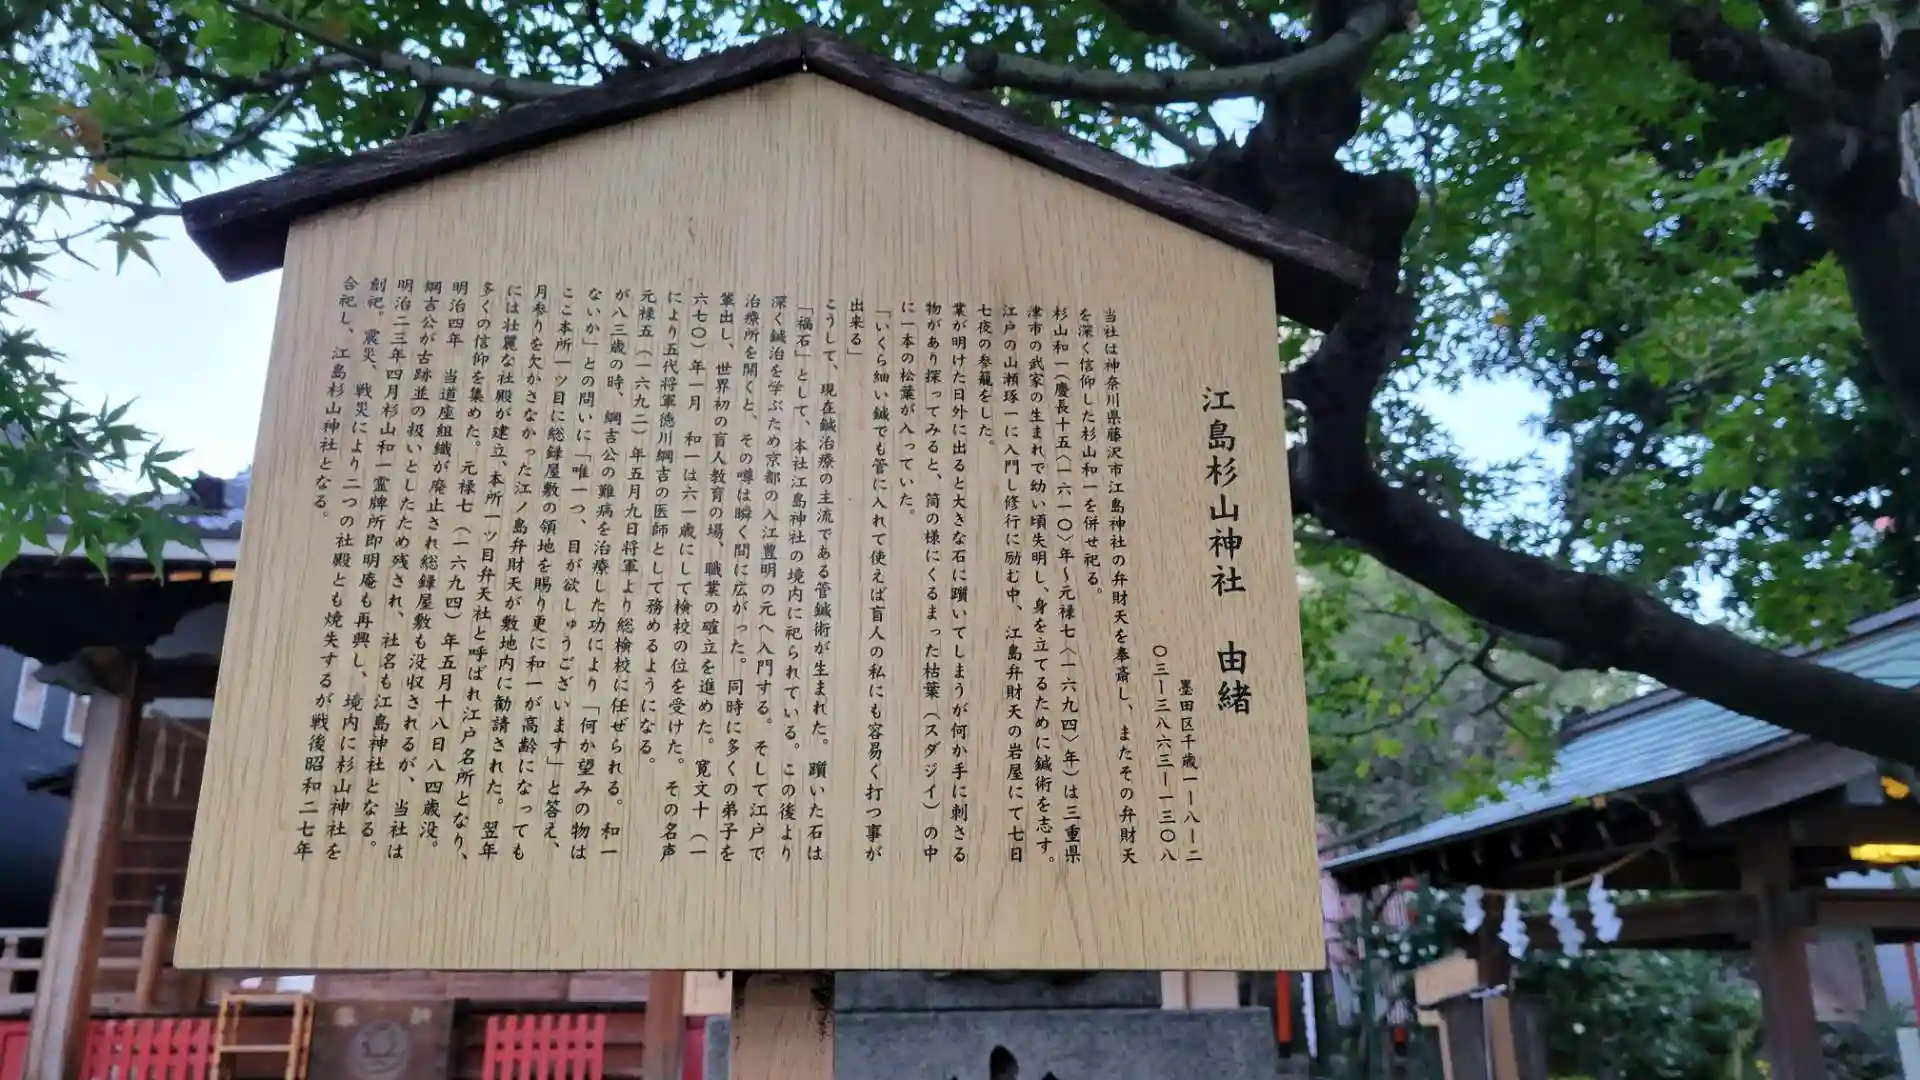 江島杉山神社　由緒
墨田区千歳一ー八ー二
〇三ー三八六三ー一三〇八
当社は神奈川県藤沢市江島神社の弁財天を奉斎し、またその弁財天
を深く信仰した杉山和一を併せ祀る。
杉山和一（慶長十五〈一六一〇〉年～元禄七〈一六九四〉年）は三重県
津市の武家の生まれで幼い頃失明し、身を立てるために鍼術を志す。
江戸の山瀬琢一に入門し修行に励む中、江島弁財天の岩屋にて七日
七夜の参籠をした。
業が明けた日外に出ると大きな石に躓いてしまうが何か手に刺さる
物があり探ってみると、筒の様にくるまった枯葉（スダジイ）の中
に一本の松葉が入っていた。
「いくら細い鍼でも管に入れて使えば盲人の私にも容易く打つ事が
出来る」
こうして、現在鍼治療の主流である管鍼術が生まれた。躓いた石は
「福石」として、本社江島神社の境内に祀られている。この後より
深く鍼治を学ぶため京都の入江豊明の元へ入門する。そして江戸で
治療所を開くと、その噂は瞬く間に広がった。同時に多くの弟子を
輩出し、世界初の盲人教育の場、職業の確立を進めた。寛文十（一
六七〇）年一月　和一は六一歳にして検校の位を受けた。その名声
により五代将軍徳川綱吉の医師として務めるようになる。
元禄五（一六九二）年五月九日将軍より総検校に任ぜられる。和一
が八三歳の時、綱吉公の難病を治療した功により「何か望みの物は
ないか」との問いに「唯一つ、目が欲しゅうございます」と答え、
ここ本所一ッ目に総録屋敷の領地を賜り更に和一が高齢になっても
月参りを欠かさなかった江ノ島弁財天が敷地内に勧請された。翌年
には壮麗な社殿が建立、本所一ッ目弁天社と呼ばれ江戸名所となり、
多くの信仰を集めた。元禄七（一六九四）年五月十八日八四歳没。
明治四年　当道座組織が廃止され総録屋敷も没収されるが、当社は
綱吉公が古跡並の扱いとしたため残され、社名も江島神社となる。
明治二三年四月杉山和一霊牌所即明庵も再興し、境内に杉山神社を
創祀。震災、戦災により二つの社殿とも焼失するが戦後昭和二七年
合祀し、江島杉山神社となる。